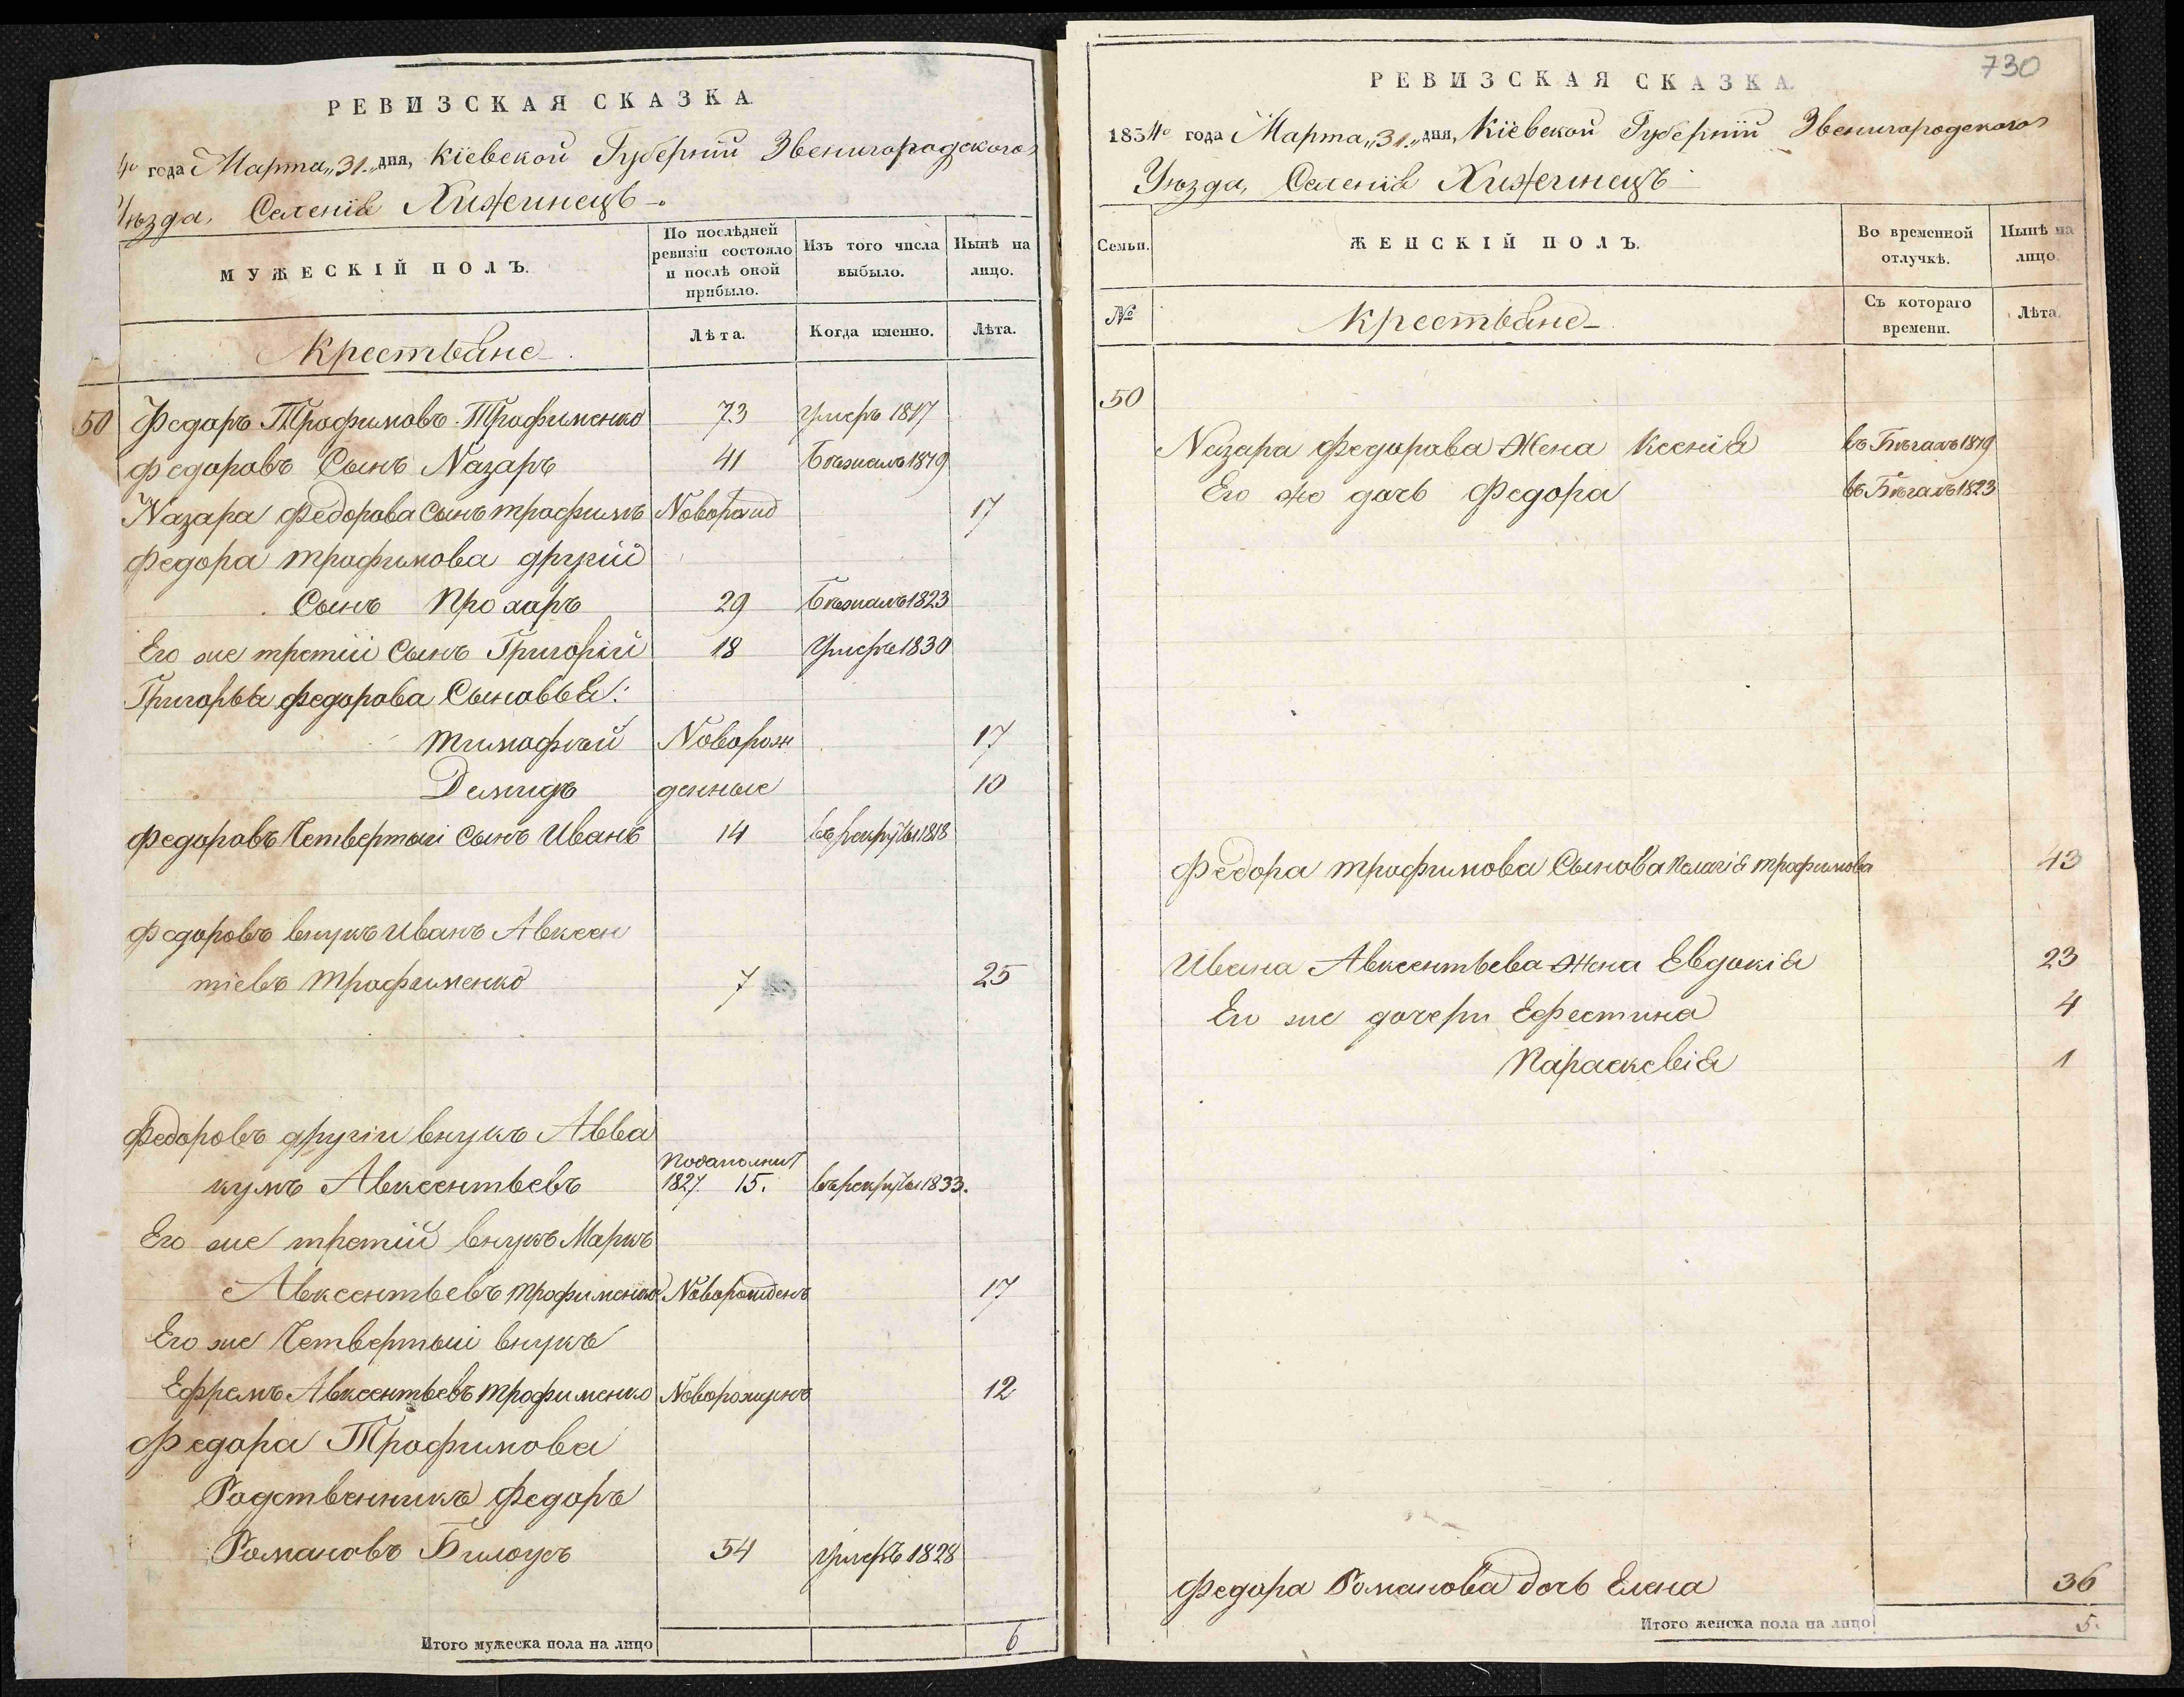 РЕВИЗСКАЯ СКАЗКА.
4го года Марта „31.„ дня, Кіевской Губерніи Звенигородского
Уѣзда, Селенія Хижинецъ
МУЖЕСКІЙ ПОЛЪ.
По послѣдней ревизіи состояло и послѣ оной прибыло.
Изъ того числа выбыло.
Нынѣ на лицо.
Крестьяне
Лѣта.
Когда именно.
Лѣта.
50 Федоръ Трофимовъ Трофименко 73 Умеръ 1817
Федоровъ Сынъ Назаръ 41 Бѣжалъ 1819
Назара Федорова Сынъ трофимъ Новорожд 17
Федора трофимова другій
Сынъ Прохоръ 29 Бѣжалъ 1823
Его же третій Сынъ Григорій 18 Умеръ 1830
Григорья Федорова Сыновья:
тимофѣй Новорож 17
Демидъ денные 10
Федоровъ Четвертый Сынъ Иванъ 14 въ рекруты 1818
Федоровъ внукъ Иванъ Авксен
тіевъ трофименко 7 25
Федоровъ другій внукъ Авва
кумъ Авксентьевъ 1827. 15. въ рекруты 1833.
Его же третій внукъ Марко
Авксентьевъ трофименко Новорожденъ 17
Его же Четвертый внукъ
Ефремъ Авксентьевъ трофименко Новорожднъ 12
Федора Трофимова
Родственникъ Федоръ
Романовъ Билоусъ 54 умеръ 1828
Итого мужеска пола на лицо 6
730
РЕВИЗСКАЯ СКАЗКА.
1834го года Марта „31.„ дня, Кіевской Губерніи Звенигородского
Уѣзда, Селенія Хижинецъ
Семьи.
ЖЕНСКІЙ ПОЛЪ.
Во временной отлучкѣ.
Нынѣ на лицо.
№
Крестьяне
Съ котораго времени.
Лѣта.
50
Назара Федорова Жена Ксенія въ Бѣгахъ 1819
Его же дочь Федора въ Бѣгахъ 1823
Федора трофимова Сынова Пелагія трофимова 43
Ивана Авксентьева Жена Евдокія 23
Ея же дочери Ефестина 4
Параскевія 1
Федора Романова дочь Елена 36
Итого женска пола на лицо 5.